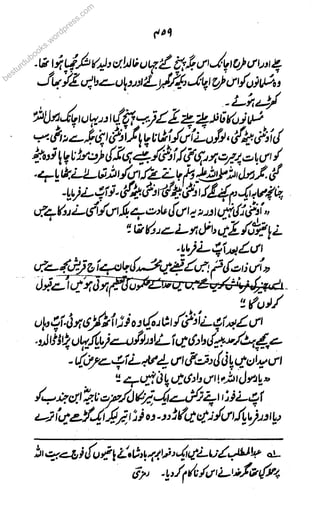 besturdubooks.wordpress.com
۴۵۹
چلے اور اس طرح اچانک اس جگہ پہنچ گئے جہاں خالد ابن ولید کا لشکر چھپا ہوا تھا۔
وہ مسلمانوں کو اس طرح اچانک دیکھ کر گھبرا گئے اور وہاں سے واپس مکے کو بھاگ
کھڑے ہوئے۔
مسلمانوں کا قافلہ چلتے چلتے مکے کے قریب پہنچ گیا اور یہاں اچانک رسول اللہؐ
کی اونٹنی بیٹھ گئی، لوگوں نے اس کو اٹھانا چاہا مگر اونٹنی اپنی جگہ سے نہ اٹھی سب
کو اس بات پر حیرت ہو رہی تھی کہ اونٹنی کو جیسے ہی مکہ کی طرف موڑنا چاہا تو وہ بیٹھ
گئی۔ مگر رسول اللہ صلی اللہ علیہ وسلم جانتے تھے کہ اس کو اللہ تعالےٰ نے بٹھایا ہے۔
چنانچہ صحابہ ایک دم کہنے لگے کہ اونٹنی بیٹھ گئی، اونٹنی بیٹھ گئی۔ تو آپؐ نے فرمایا۔
"اونٹنی رکی نہیں اور نہ یہ اس کی عادت ہے بلکہ اس کو اسی نے روکا ہے جس
نے ہاتھیوں کو مکے میں داخل ہونے سے روکا تھا"
اس کے بعد آپؐ نے فرمایا۔
"اس ذات کی قسم جس کے قبضے میں محمد کی جان ہے آج قریش مجھ سے جس
ایسی چیز کی فرمائش کریں گے جس میں خدا کے حکموں کی تعظیم ہوتی ہو میں اسے قبول
کرلوں گا"
اس کے بعد آپؐ نے اونٹنی کو اشارہ کیا وہ فوراً اٹھ کھڑی ہوئی، آپؐ وہاں
سے پیچھے ہٹ کر حدیبیہ کی وادی میں آئے اور لوگوں سے فرمایا کہ یہاں پڑاؤ ڈالدو۔
اس میدان میں پانی کی دقت تھی اس لئے صحابہ نے آپؐ سے عرض کیا۔
"یا رسول اللہؐ! اس وادی میں پانی نہیں ہے"
آپؐ نے فوراً اپنے ترکش سے ایک تیر نکال کر حضرت ناجیہؓ ابن جندب کو
دیا اور فرمایا کہ اس کو زمین میں گاڑ دو۔ وہ فوراً تیر لیکر ایک گڑھے میں اترے
لہ عبدالمطلب کے زمانے میں ایک دفعہ ابرہہ بادشاہ نے ہاتھیوں کی فوج سے بیت اللہ
پر حملہ کیا تھا مگر خدا نے اس کو ناکام کر دیا۔